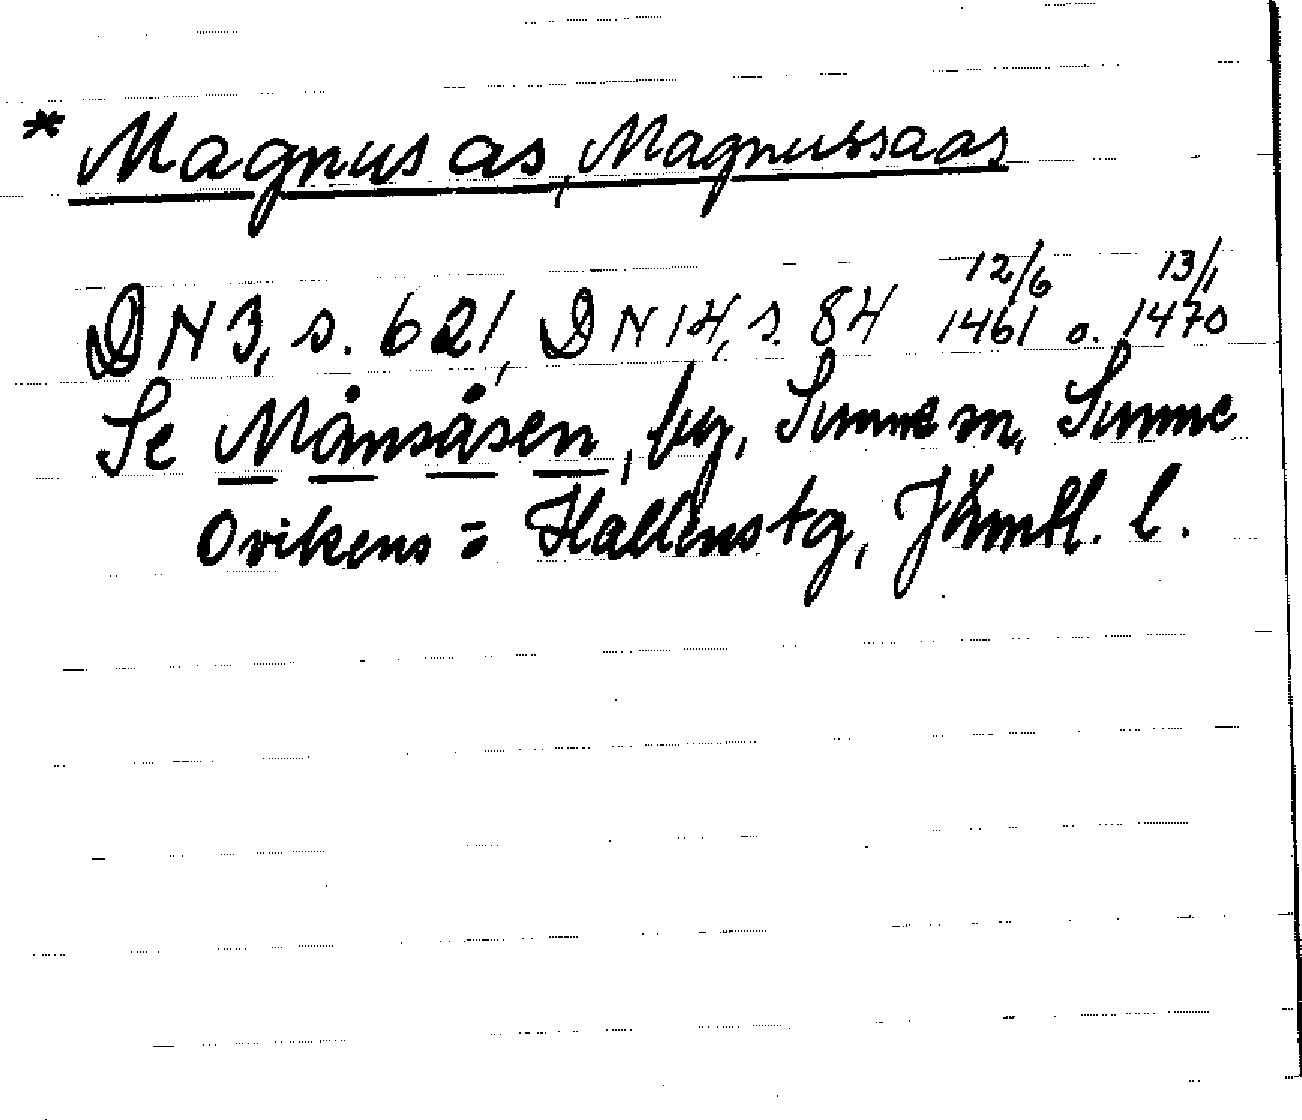 * Magnus as, Magnussaas
DN 3, s. 621, DN 14, s. 84 12/6 1461 o. 13/1 1470
Se Månsåsen, by, Sunne sn, Sunne
Ovikens = Hallens tg, Jämtl. l.